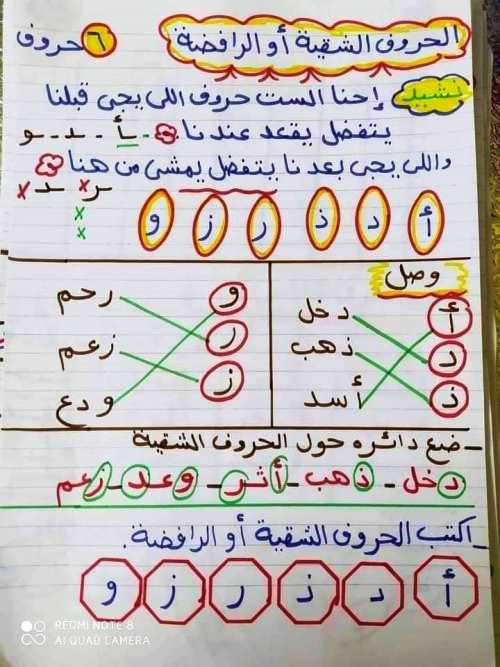 الحروف الشقية أو الرافضة ٦ حروف
نشيد إحنا الست حروف اللى يجى قبلنا
يتفضل يقعد عندنا ـأ - ـد - ـو
واللى يجى بعدنا يتفضل يمشى من هنا
ـر x ـد x
x
x
أ د ذ ر ز و
وصل
دخل أ
ذهب د
أسد ذ
رحم و
زعم ر
ودع ز
- ضع دائره حول الحروف الشقية
دخل - ذهب - أثر - وعد - زعم
- اكتب الحروف الشقية أو الرافضة.
أ د ذ ر ز و
REDMI NOTE 8
AI QUAD CAMERA